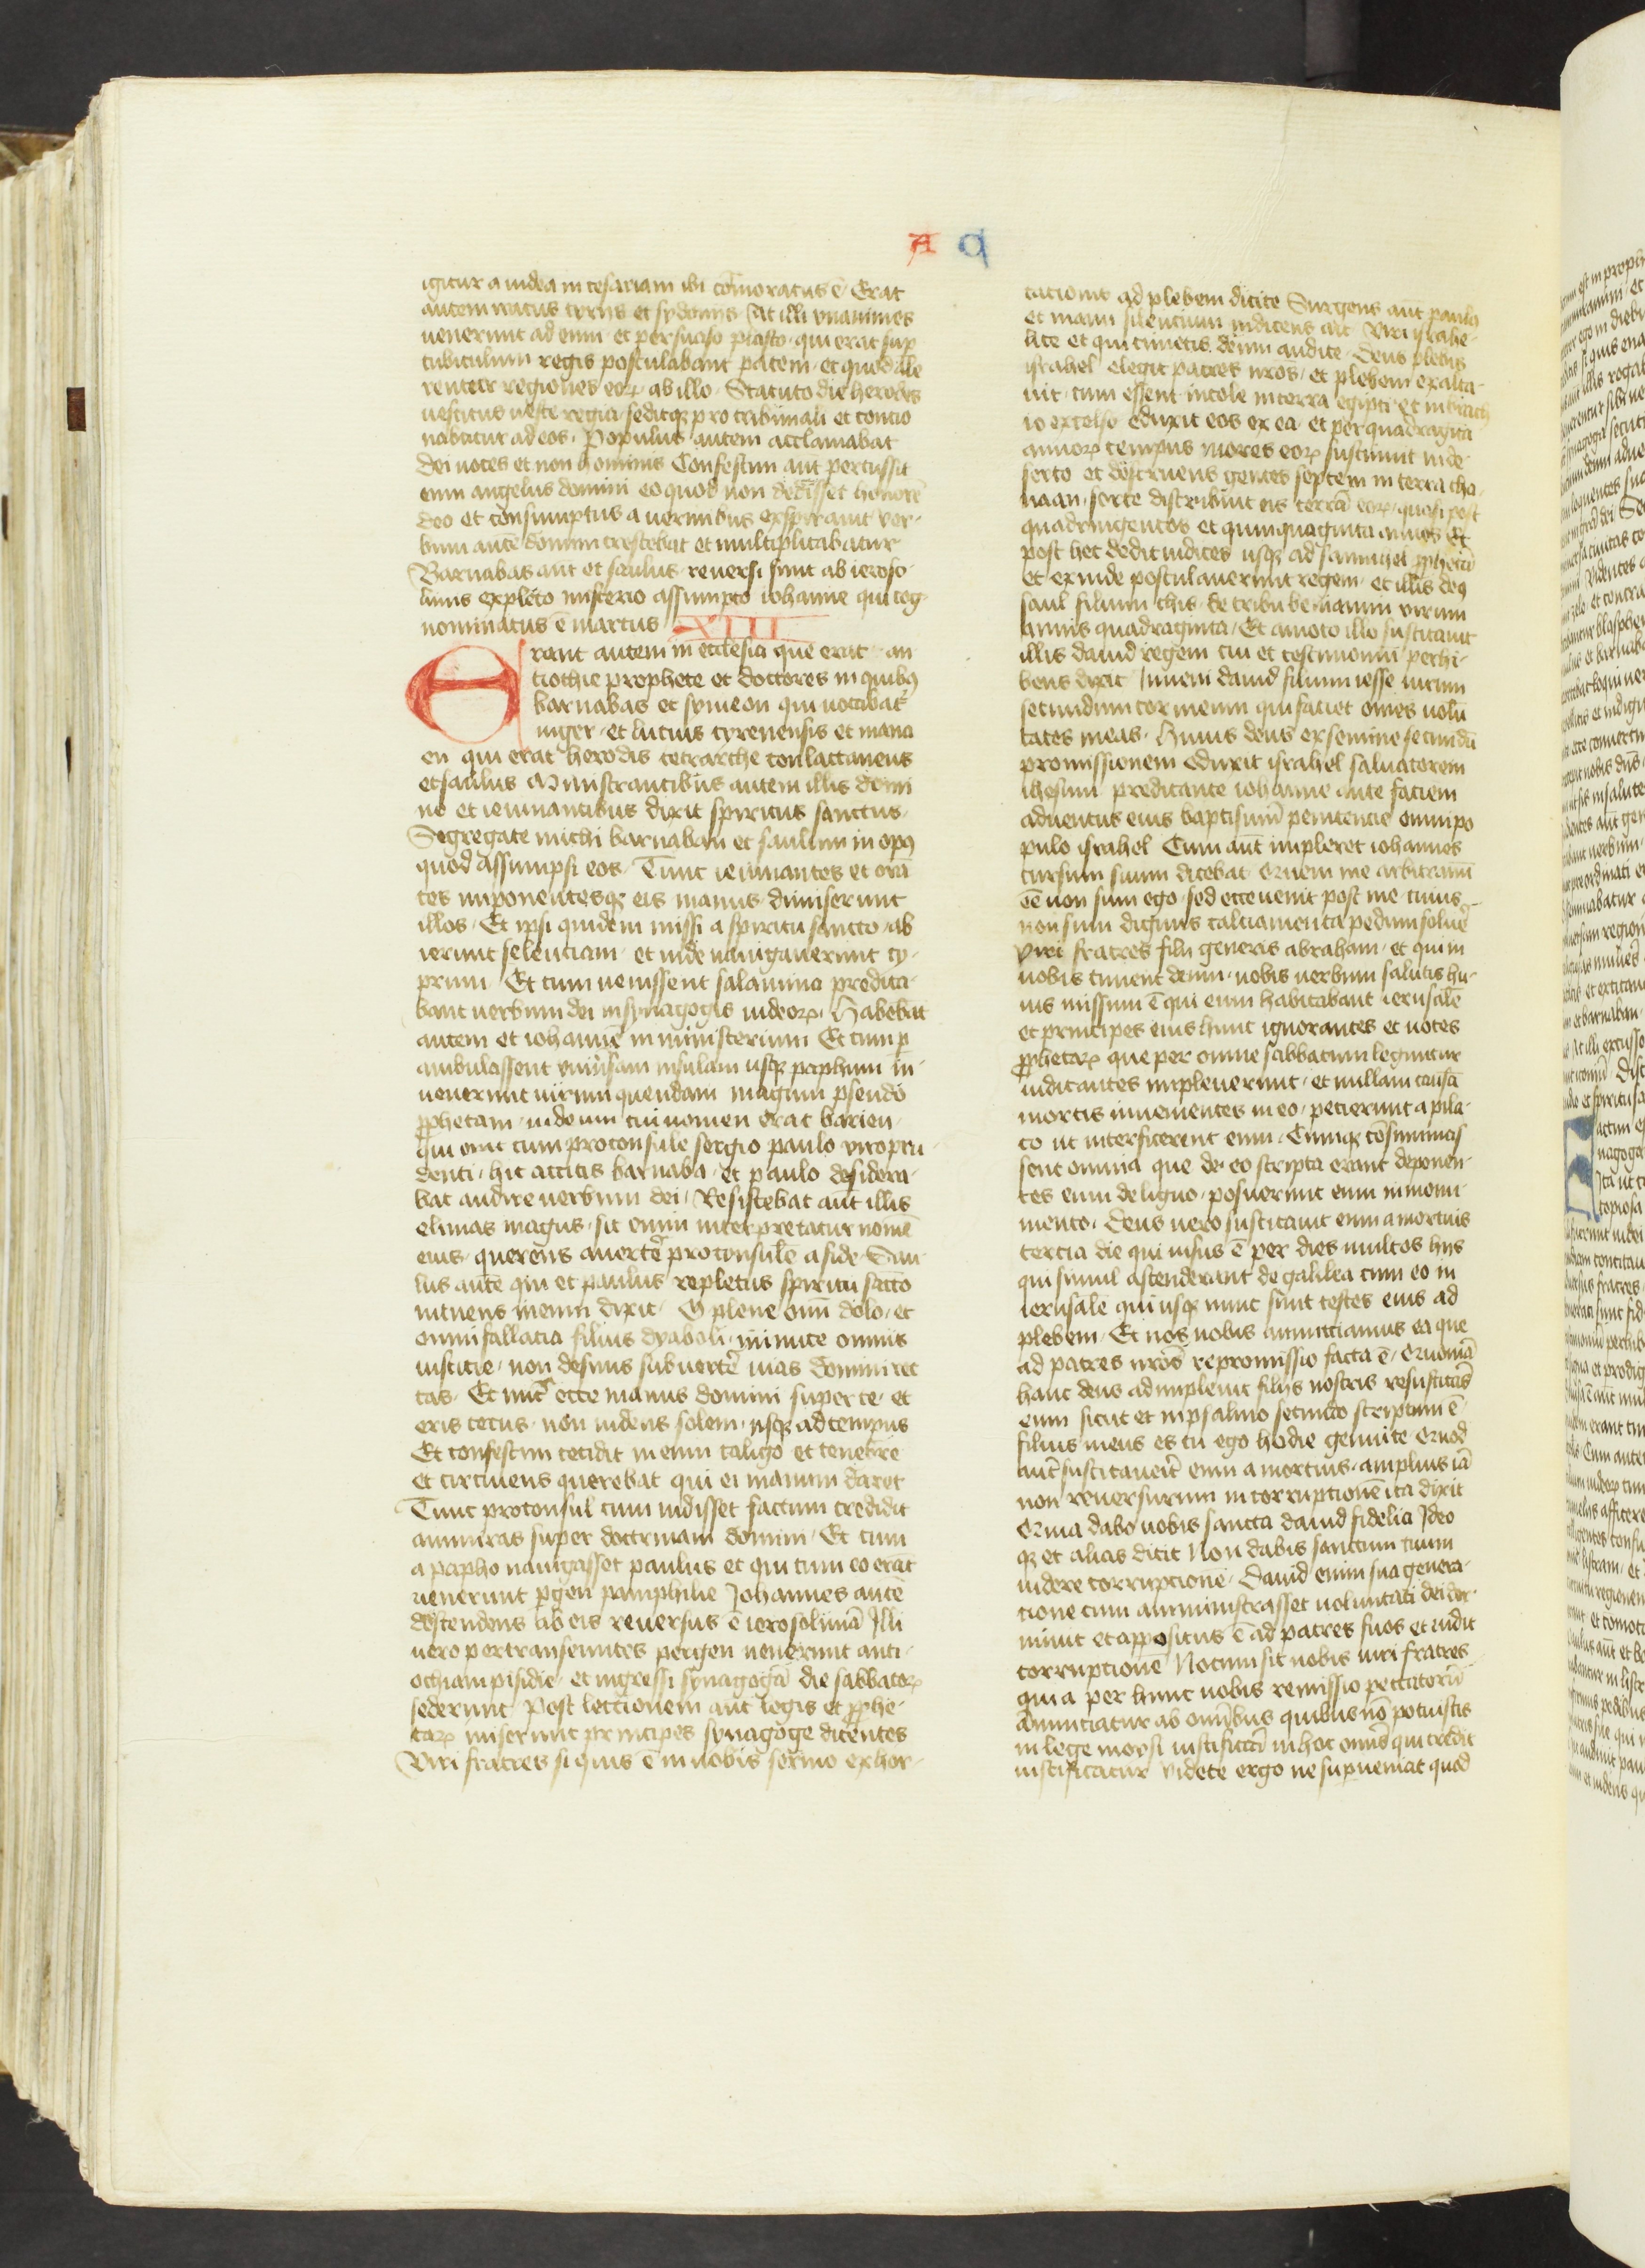 A q
igitur a iudea in cesariam ibi cōmoratus ē Erat
autem iratus tyriis et sydoniis At illi vnanimes
uenerunt ad eum et persuaso plasto qui erat sup
cubiculum regis postulabant pacem et quod ale
rentur regiones eoꝝ ab illo Statuto die herodes
uestitus ueste regia sedit pro tribunali et concio
nabatur ad eos Populus autem acclamabat
dei uoces et non hominis Confestim aut percussit
eum angelus domini eo quod non dedisset honorē
deo et consumptus a uermibus exspirauit ver
bum autē domini crescebat et multiplicabatur
Barnabas aut et saulus reuersi sunt ab ieroso
limis expleto misterio assumpto iohanne qui cog
nominatus ē marcus XIII
Erant autem in ecclesia que erat an
tiochie prophete et doctores in quibꝰ
barnabas et symeon qui uocabat᷑
niger et lucius cyrenensis et mana
en qui erat herodis tetrarche conlactaneus
et saulus Ministrantibus autem illis domi
no et ieiunantibus dixit spiritus sanctus
Segregate michi barnaban et saulum in opꝰ
quod assumpsi eos Tunc ieiunantes et orā
tes imponentesqꝫ eis manus dimiserunt
illos Et ipsi quidem missi a spiritu sancto ab
ierunt seleuciam et inde nauigauerunt cy
prum Et cum uenissent salamina predica
bant uerbum dei in synagogis iudeoꝝ Habebat
autem et iohannē in ministerium Et cum ꝑ
ambulassent vniuersam insulam usqꝫ paphum in
uenerunt uirum quendam magum pseudo
ꝓphetam iudeum cui nomen erat barieu
qui erat cum proconsule sergio paulo viro pru
denti hic accitis barnaba et paulo desidera
bat audire uerbum dei Resistebat aut illis
elimas magus sic enim interpretatur nomē
eius querens auertere proconsulē a fide Sau
lus autē qui et paulus repletus spiritu sācto
intuens in eum dixit O plene omī dolo et
omni fallacia filius dyaboli inimice omnis
iusticie non desinis subuertere uias domini rec
tas Et nūc ecce manus domini super te et
eris cecus non uidens solem usqꝫ ad tempus
Et confestim cecidit in eum caligo et tenebre
et circuiens querebat qui ei manum daret
Tunc proconsul cum uidisset factum credidit
ammiras super doctrinam domini Et cum
a papho nauigasset paulus et qui cum eo erāt
uenerunt pergen pamphilie Johannes autē
descendens ab eis reuersus ē ierosolimā Illi
uero pertranseuntes pergen uenerunt anti
ochiam pisidie et ingressi synagogā die sabbatoꝝ
sederunt Post lectionem aut legis et ꝓphe
taꝝ miserunt principes synagoge dicentes
Viri fratres si quis ē in uobis sermo exhor
tationis ad plebem dicite Surgens aut paulꝰ
et manu silentium indicens ait Viri israhe
lite et qui timetis deum audite Deus plebis
israhel elegit patres nros et plebem exalta
uit cum essent incole in terra egipti et in brach
io excelso eduxit eos ex ea et per quadraginta
annoꝝ tempus mores eoꝝ sustinuit in de
serto et destruens gentes septem in terra cha
naan sorte distribuit eis terrā eoꝝ quasi post
quadringentos et quinquaginta annos Et
post hec dedit iudices usqꝫ ad samuhel ꝓphetā
et exinde postulauerunt regem et illis deꝰ
saul filium chis de tribu beniamin virum
annis quadraginta Et amoto illo suscitauit
illis dauid regem cui et testimonium perhi
bens dixit Inueni dauid filium iesse uirum
secundum cor meum qui faciet omes uolū
tates meas Huius deus ex semine secundū
promissionem eduxit israhel saluatorem
ihesum predicante iohanne ante faciem
aduentus eius baptismū penitencie omni po
pulo israhel Cum aut impleret iohannes
cursum suum dicebat Quem me arbitramī
eē non sum ego sed ecce uenit post me cuius
non sum dignus calciamenta pedum soluere
Viri fratres filii generis abraham et qui in
uobis timent deum uobis uerbum salutis hu
ius missum ē qui eum habitabant ierusalē
et principes eius hunc ignorantes et uoces
ꝓphetaꝝ que per omne sabbatum leguntur
iudicantes impleuerunt et nullam causā
mortis inuenientes in eo petierunt a pila
to ut interficerent eum Cumqꝫ cōsummas
sent omnia que de eo scripta erant deponen
tes eum de ligno posuerunt eum in monu
mento Deus uero suscitauit eum a mortuis
tercia die qui uisus ē per dies multos hiis
qui simul ascenderant de galilea cum eo in
ierusalē qui usqꝫ nunc sunt testes eius ad
plebem Et nos uobis annunciamus ea que
ad patres nros repromissio facta ē Quoniā
hanc deus adimpleuit filiis nostris resuscitās
eum sicut et in psalmo secundo scriptum ē
filius meus es tu ego hodie genui te Quod
aut suscitauerit eum a mortuis amplius iā
non reuersurum in corruptionē ita dixit
Quia dabo uobis sancta dauid fidelia Ideo
qꝫ et alias dicit Non dabis sanctum tuum
uidere corruptionē Dauid enim sua genera
tione cum amministrasset uoluntati dei dor
miuit et appositus ē ad patres suos et uidit
corruptionē Notum sit uobis uiri fratres
quia per hunc uobis remissio peccatorū
annunciatur ab omībus quibus nō potuistis
in lege moysi iustificari in hoc omis qui credit
iustificatur videte ergo ne superueniat quod